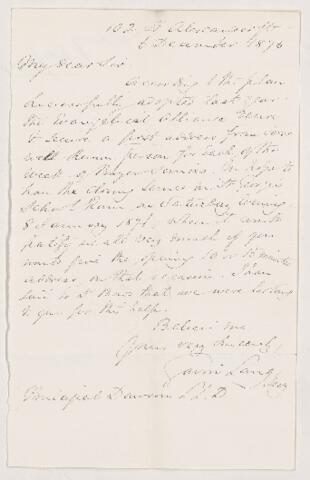 102 St Alexander St
6 December 1876
My dear Sir
According to the plan
successfully adopted last year
the Evangelical Alliance desire
to secure a first address from some
well known person for each of the
week of Prayer Services. We hope to
have the closing Service in St George's
School Room on Saturday Evening
8 January 1876 when it will
gratify us all very much if you
would give the opening 10 or 15 minute
address on that occasion. I
said is it that we were
to you for this help.
Believe me
Yours very sincerely
Gavin Lang
Secy
Principal Dawson LL.D